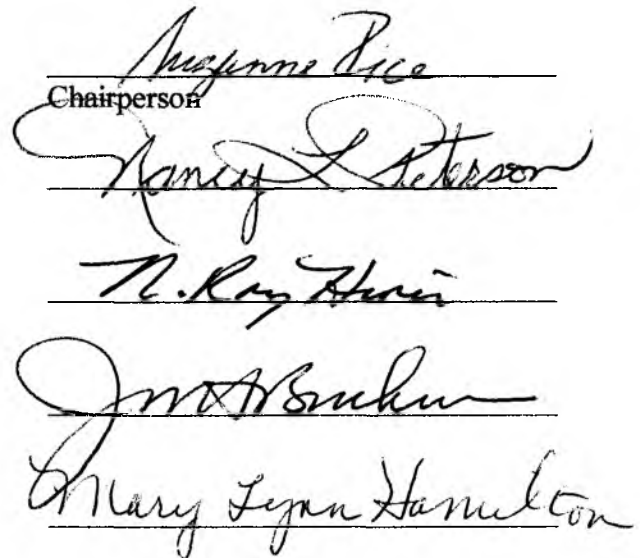 Suzanne Rice
Chairperson
Nancy L Peterson
N. Ray Hiner
Mary Lynn Hamilton